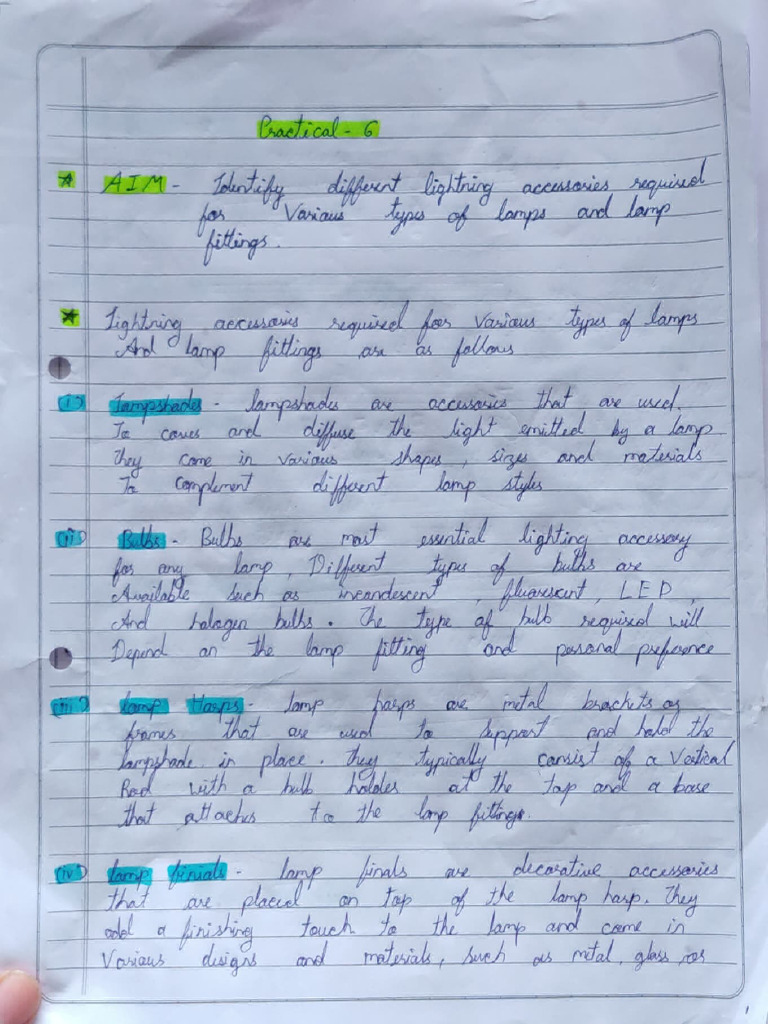 Practical - 6
AIM - Identify different lightning accessories required
for Various types of lamps and lamp
fittings.
Lightning accessories required for various types of lamps
And lamp fittings are as follows
(i) Lampshades - lampshades are accessories that are used.
To cover and diffuse the light emitted by a lamp
They come in various shapes, sizes and materials
To complement different lamp styles
(ii) Bulbs - Bulbs are most essential lighting accessory
for any lamp, Different types of bulbs are
Available such as incandescent, fluorescent, LED,
And halogen bulbs. The type of bulb required will
Depend on the lamp fitting and personal preference
(iii) lamp Harps - lamp harps are metal brackets or
frames that are used to support and hold the
lampshade in place. They typically consist of a Vertical
Rod with a bulb holder at the top and a base
that attaches to the lamp fittings.
(iv) lamp finials - lamp finals are decorative accessories
that are placed on top of the lamp harp. They
add a finishing touch to the lamp and come in
Various designs and materials, such as metal, glass, or